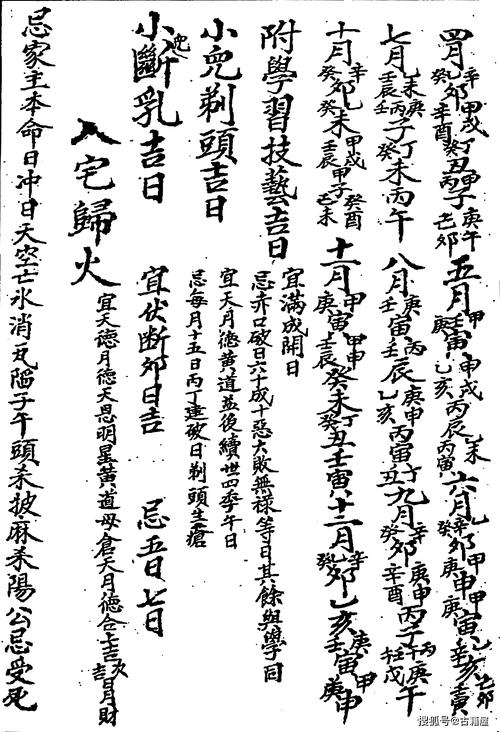 四月辛癸卯甲戌辛酉丁癸丑甲丙子庚午乙卯五月甲壬寅申戌乙亥丙辰乙未丙寅六月乙辛癸卯甲庚申甲庚寅乙辛亥乙卯壬寅
七月乙未庚壬辰壬丙子丁癸未丙午八月庚壬寅丙壬辰庚申乙亥丙寅丁丑九月辛癸卯辛酉庚申丙子丙庚午壬戌
十月辛癸卯乙癸未甲戌壬辰甲子癸酉己未十一月甲庚寅甲申壬辰癸未丁癸丑壬寅十二月辛癸卯乙亥庚壬寅甲庚申
附學習技藝吉日
宜滿成開日
忌赤口破日六十成十惡大敗無祿等日其餘與學同
小兒剃頭吉日
宜天月德黃道益後續世四季午日
忌每月十五日丙丁建破日剃頭生瘡
小兒斷乳吉日 宜伏断卯日吉 忌五日七日
入宅歸火
宜天德月德天恩明星黃道母倉天月德合上吉次吉月財
忌家主本命日冲日天空亡氷消瓦陷子午頭杀披麻杀陽公忌受死
搜狐号@古籍屋